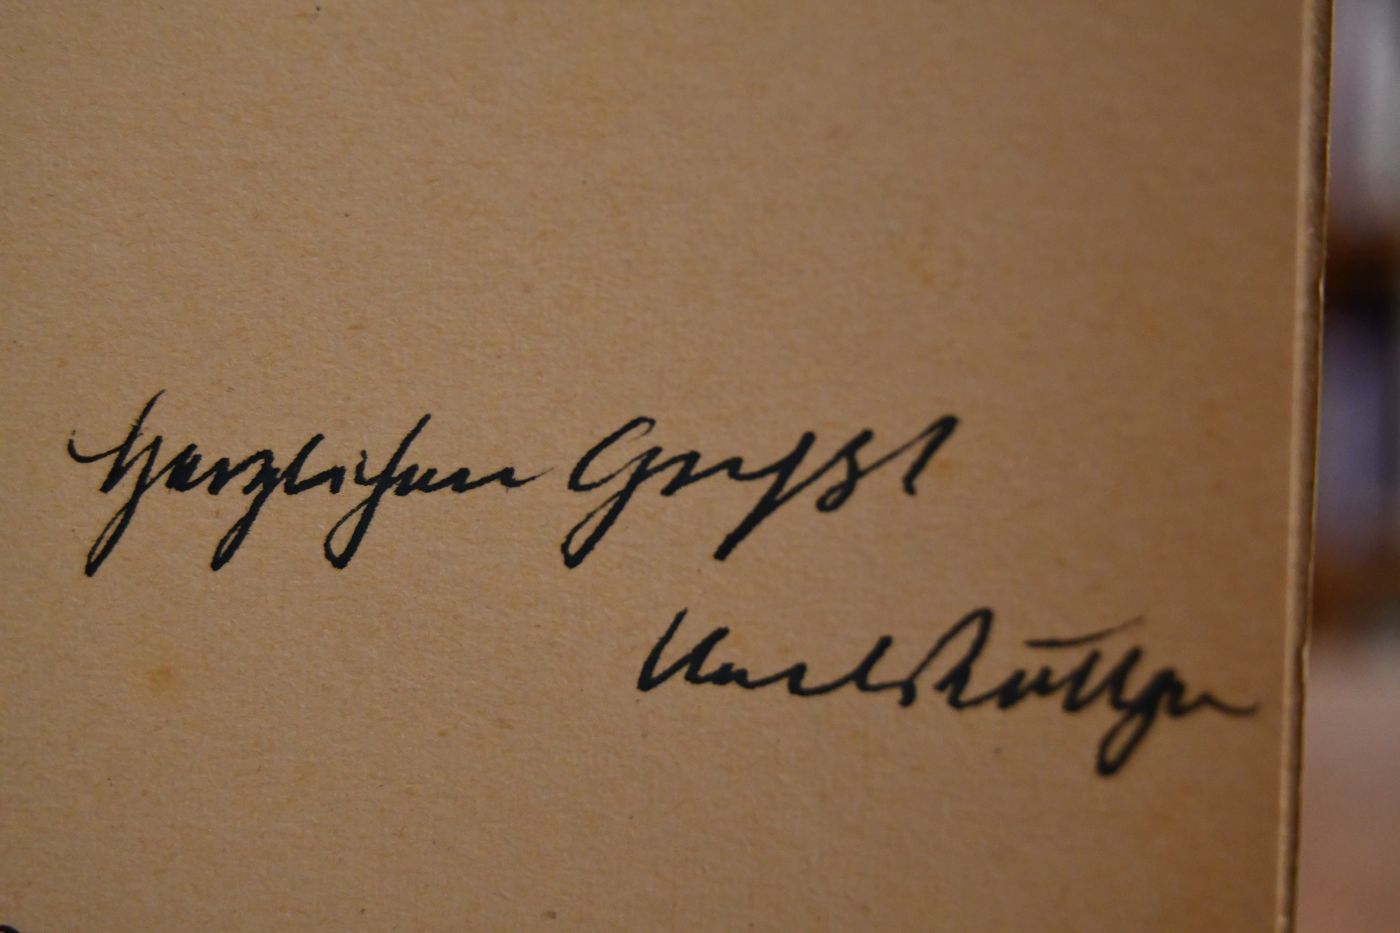 Herzlichen Gruß!
Karl Röttger